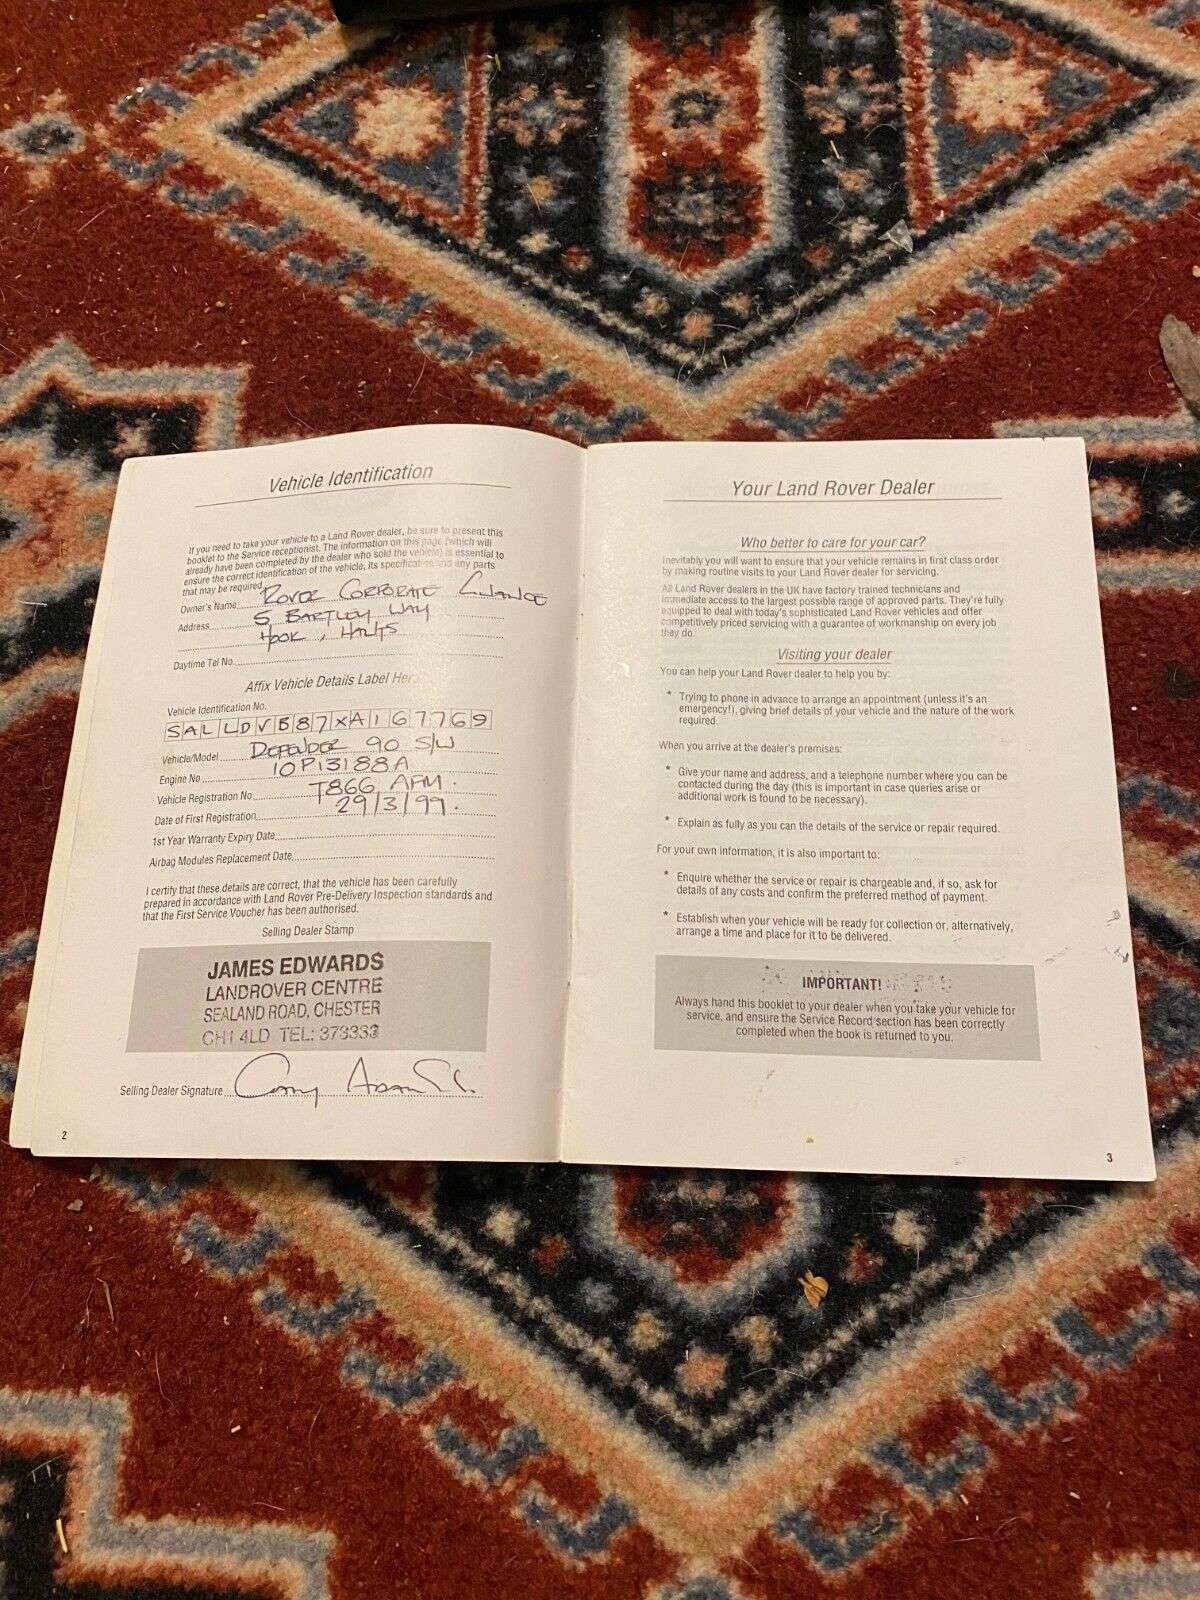 Vehicle Identification
If you need to take your vehicle to a Land Rover dealer, be sure to present this
booklet to the Service receptionist. The information on this page (which will
already have been completed by the dealer who sold the vehicle) is essential to
ensure the correct identification of the vehicle, its specification and any parts
that may be required.
Owner's Name ROVER CORPORATE
Address 5 BARTLEY WAY
HOOK, HANTS
Daytime Tel No.
Affix Vehicle Details Label Here
Vehicle Identification No.
SALLDVB87XA167769
Vehicle/Model DEFENDER 90 S/W
Engine No 10P13188A
Vehicle Registration No T866 AFM.
Date of First Registration 29/3/99.
1st Year Warranty Expiry Date
Airbag Modules Replacement Date
I certify that these details are correct, that the vehicle has been carefully
prepared in accordance with Land Rover Pre-Delivery Inspection standards and
that the First Service Voucher has been authorised.
Selling Dealer Stamp
JAMES EDWARDS
LANDROVER CENTRE
SEALAND ROAD, CHESTER
CH1 4LD TEL: 373333
Selling Dealer Signature
2
Your Land Rover Dealer
Who better to care for your car?
Inevitably you will want to ensure that your vehicle remains in first class order
by making routine visits to your Land Rover dealer for servicing.
All Land Rover dealers in the UK have factory trained technicians and
immediate access to the largest possible range of approved parts. They're fully
equipped to deal with today's sophisticated Land Rover vehicles and offer
competitively priced servicing with a guarantee of workmanship on every job
they do.
Visiting your dealer
You can help your Land Rover dealer to help you by:
* Trying to phone in advance to arrange an appointment (unless it's an
emergency!), giving brief details of your vehicle and the nature of the work
required.
When you arrive at the dealer's premises:
* Give your name and address, and a telephone number where you can be
contacted during the day (this is important in case queries arise or
additional work is found to be necessary).
* Explain as fully as you can the details of the service or repair required.
For your own information, it is also important to:
* Enquire whether the service or repair is chargeable and, if so, ask for
details of any costs and confirm the preferred method of payment.
* Establish when your vehicle will be ready for collection or, alternatively,
arrange a time and place for it to be delivered.
IMPORTANT!
Always hand this booklet to your dealer when you take your vehicle for
service, and ensure the Service Record section has been correctly
completed when the book is returned to you.
3